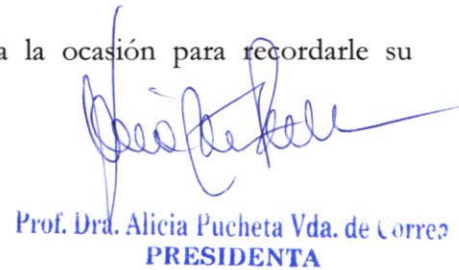 a la ocasión para recordarle su
Prof. Dra. Alicia Pucheta Vda. de Correa
PRESIDENTA